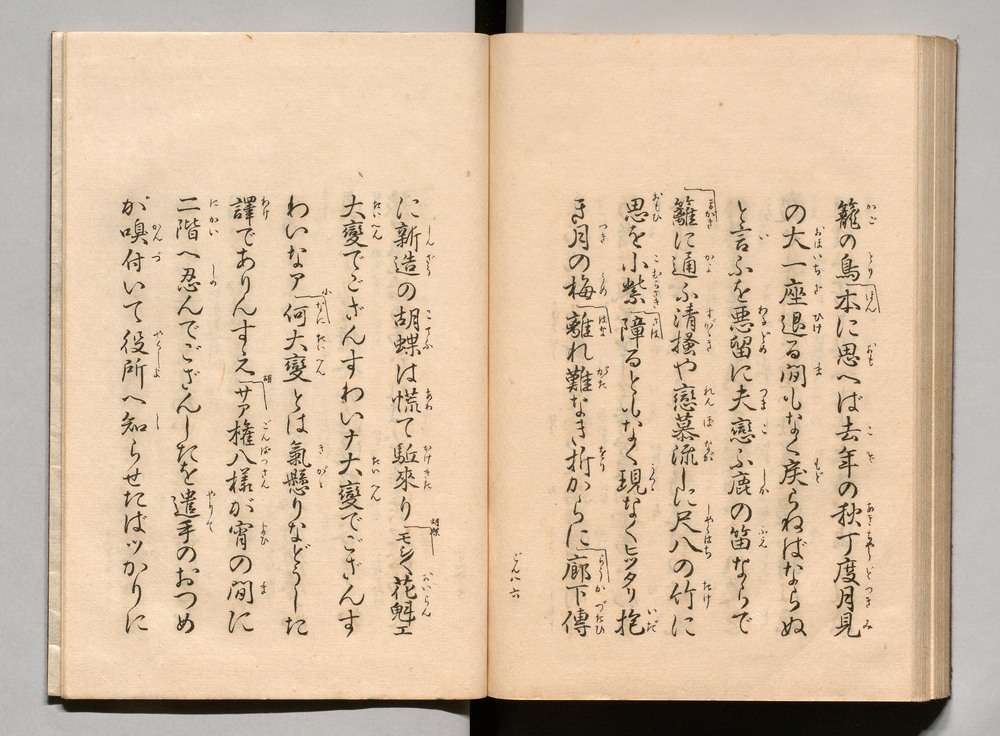 籠の鳥本に思へば去年の秋丁度月見
の大一座退る間もなく戻らねばならぬ
と言ふを悪留に夫戀ふ鹿の笛ならで
籬に通ふ清掻や戀慕流しに尺八の竹に
思を小紫障るともなく現なくヒッタリ抱
き月の梅離れ難なき折からに廊下傳
ごん八 六
に新造の胡蝶は慌て駈來り胡蝶モシ〳〵花魁エ
大變でござんすわいナ大變でござんす
わいなア小むら何大變とは氣懸りなどうした
譯でありんすえ胡サア權八樣が宵の間に
二階へ忍んでござんしたを遣手のおつめ
が嗅付いて役所へ知らせたばッかりに